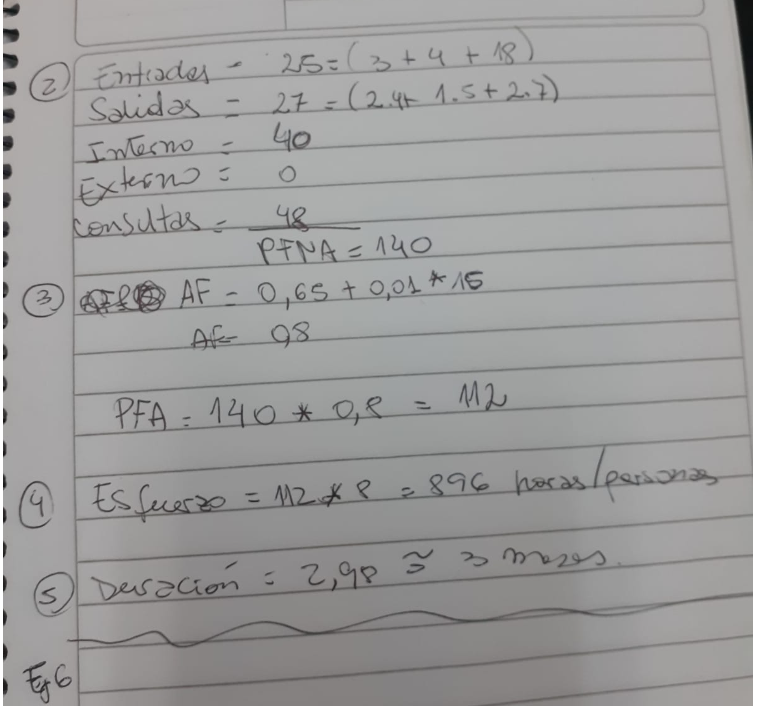 ② Entradas - 25 = (3 + 4 + 18)
Salidas = 27 = (2.4+ 1.5 + 2.7)
Interno = 40
Externo = 0
Consultas = 48
PFNA = 140
③ AF = 0,65 + 0,01 * 15
AF = 0,8
PFA = 140 * 0,8 = 112
④ Esfuerzo = 112 * 8 = 896 horas/personas
⑤ Duración = 2,98 ≅ 3 meses.
Ej 6